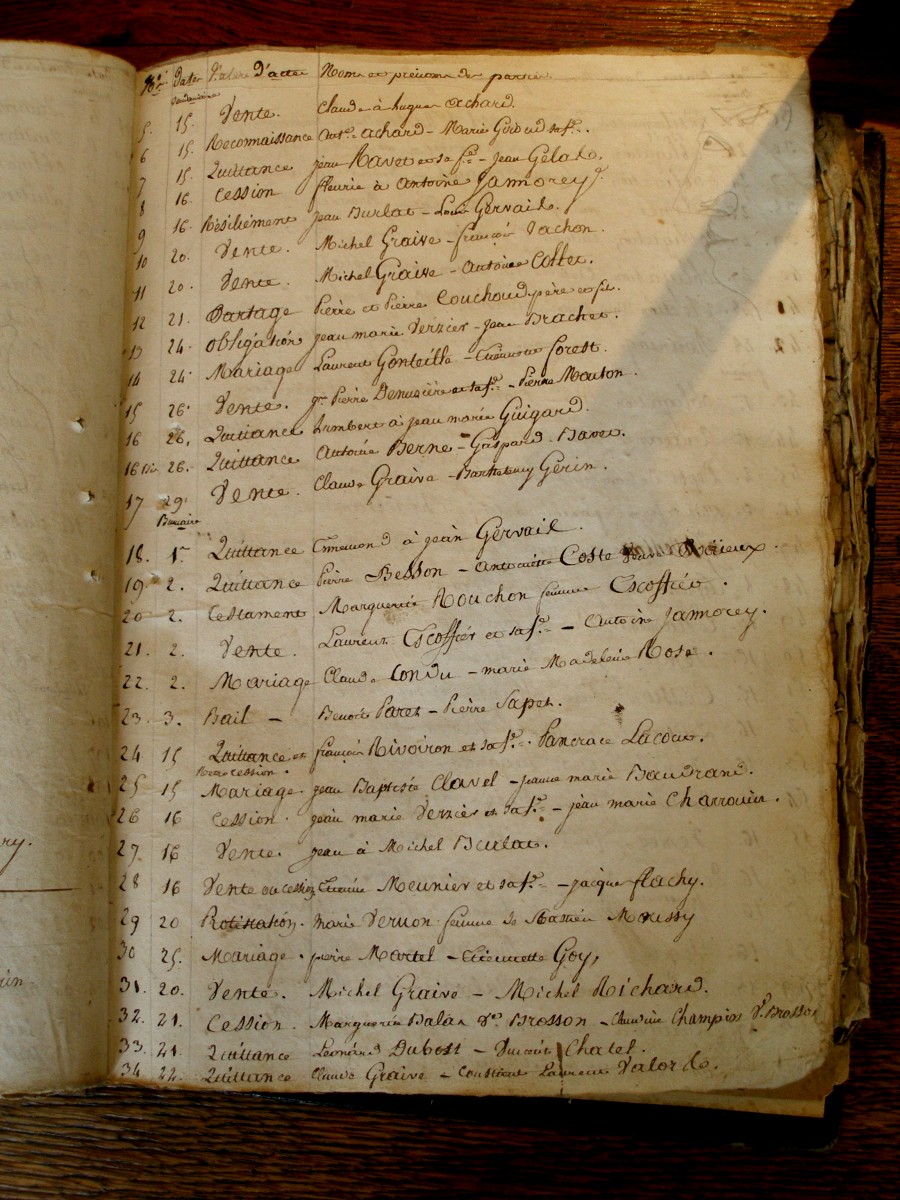 Nos Dates Nature D'actes Noms et prénoms des parties
Vendémiaire
5. 15. Vente. Claude à hugues achard.
6 15. Reconnaissance Ant.e achard - Marie Giroud sa f.e.
7 15. Quittance jean Ravet et sa f.e - jean Gelas.
8 16. Cession fleurie à antoine Jamorey
9 16. Résiliement jean Burlat - Louis Gervais.
10 20. Vente. Michel Graive - françois Vachon.
11 20. Vente. Michel Graive - Antoine Collet.
12 21. Partage Pierre et Pierre Couchoud père et fils.
13 24. Obligation jean marie Verzier - jean Brachet.
14 24. Mariage Laurent Gonteille - Forest.
15 26. Vente. Pierre et sa f.e - Pierre Mouton.
16 26. Quittance à jean marie Guigard.
16 bis 26. Quittance Antoine Berne - Gaspard Bavet.
17 29. Vente. Claude Graive - Barthelemy Gérin.
Brumaire
18. 1er Quittance à jean Gervais.
19 2. Quittance Pierre Besson - Antoinette Coste
20 2. Testament Marguerite Rouchon femme Escoffier.
21. 2. Vente. Laurent Escoffier et sa f.e - Antoine Jamorey.
22. 2. Mariage Claude Condu - marie Madeleine Rose.
23. 3. Bail - Benoit Paret - Pierre Sapet.
24 15 Quittance et françois Rivoiron et sa f.e. Pancrace Lacour.
Retrocession.
25 15 Mariage. jean Baptiste Clavel - jeanne marie Baudrand.
26 16 Cession. jean marie Verzier et sa f.e - jean marie Charrouin.
27 16 Vente. jean à Michel Burlat.
28 16 Vente ou cession Etienne Meunier et sa f.e - jacques flachy.
29 20 marie Vernon femme de Moussy
30 25. Mariage. pierre Martel - Etiennette Goy,
31. 20. Vente. Michel Graive - Michel Richard.
32. 21. Cession. Marguerite Balas V.e Brosson - Claudine Champion V.e Brosson
33. 21. Quittance Leonard Dubost - Chatel.
34 22. Quittance Claude Graive - Laurent Valorde.